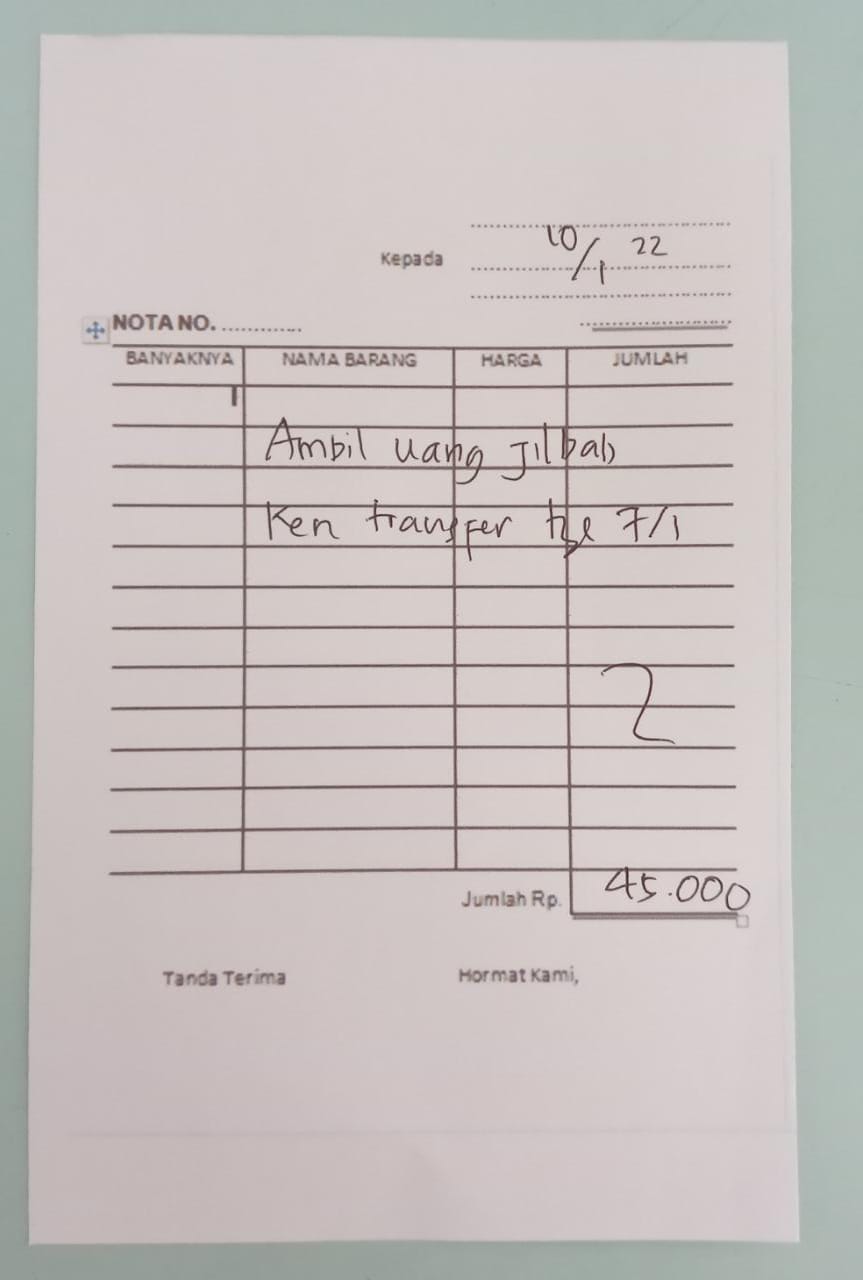 10/1 22
Kepada
NOTA NO. ............
BANYAKNYA NAMA BARANG HARGA JUMLAH
Ambil uang Jilbab
Ken transfer 7/1
Jumlah Rp. 45.000
Tanda Terima Hormat Kami,